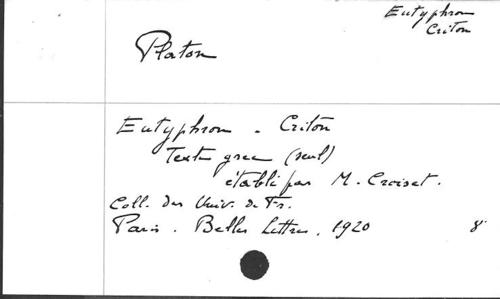 Eutyphron
Criton
Platon
Eutyphron - Criton
Texte grec (seul)
établi par M. Croiset.
Coll. des Univ. de Fr.
Paris. Belles Lettres, 1920 8°